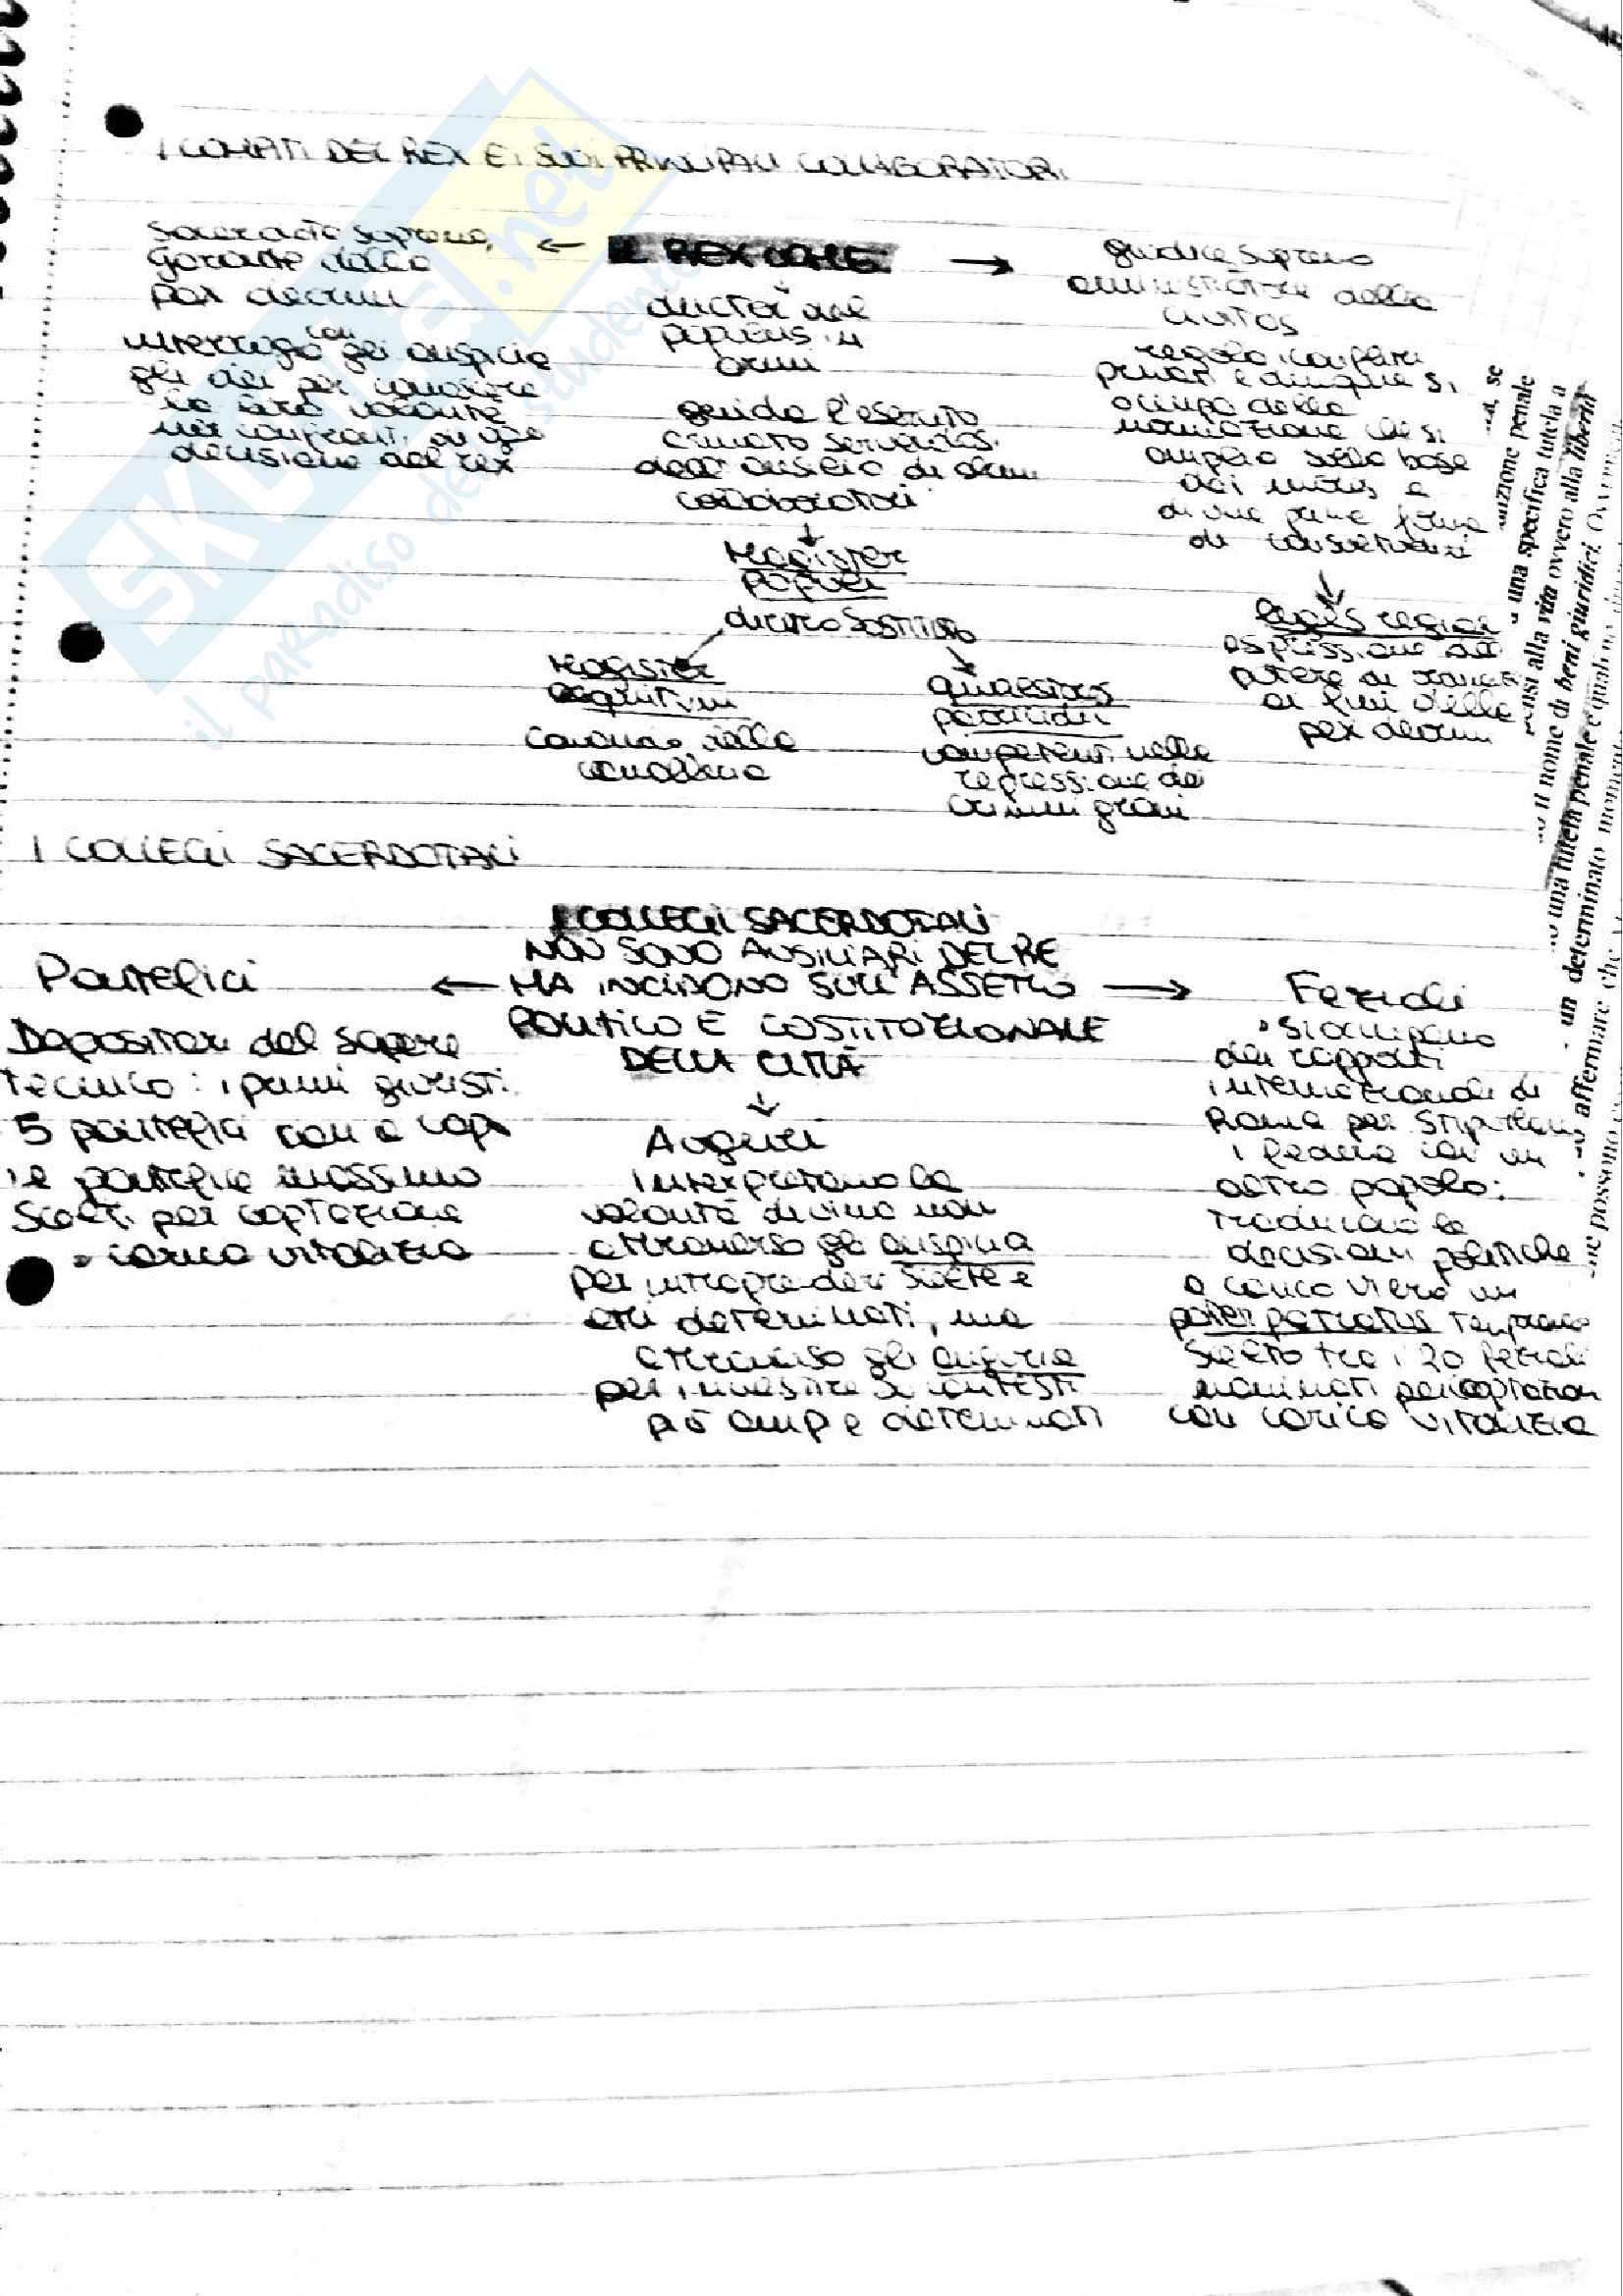 I COMPITI DEL REX E I SUOI PRINCIPALI COLLABORATORI
Sacerdote supremo,
garante della
pax deorum
interroga con gli auspicia
gli dei per conoscere
la loro volontà
nei confronti di una
decisione del rex
← IL REX →
ductor del
populus in
armi
guida l'esercito
armato servendosi
dell' ausilio di alcuni
collaboratori
↓
Magister
populi
diretto sostituto
Magister
equitum
comando della
cavalleria
quaestores
parricidii
competenti nella
repressione dei
crimini gravi
giudice supremo
amministratore della
civitas
regola i conflitti
privati e dunque si
occupa della
normazione che si
amplia sulla base
dei mores e
di una prima forma
di consuetudini
↓
leges regiae
espressione del
potere di
ai fini della
pax deorum
I COLLEGI SACERDOTALI
I COLLEGI SACERDOTALI
NON SONO AUSILIARI DEL RE
← MA INCIDONO SULL'ASSETTO →
POLITICO E COSTITUZIONALE
DELLA CITTÀ
↓
Pontefici
Depositari del sapere
tecnico: i primi giuristi
5 pontefici con a capo
il pontefice massimo
Scelti per cooptazione
• carica vitalizia
Auguri
interpretano la
volontà divina non
attraverso gli auspicia
per intraprendere scelte e
atti determinati, ma
attraverso gli auguria
per investire contesti
più ampi e determinati
Feziali
• si occupano
dei rapporti
internazionali di
Roma per stipulare
i foedera con un
altro popolo:
traducono le
decisioni politiche
a carico vi era un
pater patratus temporaneo
scelto tra i 20 feziali
nominati per cooptazione
con carica vitalizia
se
sanzione penale
una specifica tutela a
alla vita ovvero alla libertà
il nome di beni giuridici.
una tutela penale e quali
un determinato momento
affermare che
possono
SKUOLA.net
il paradiso dello studente